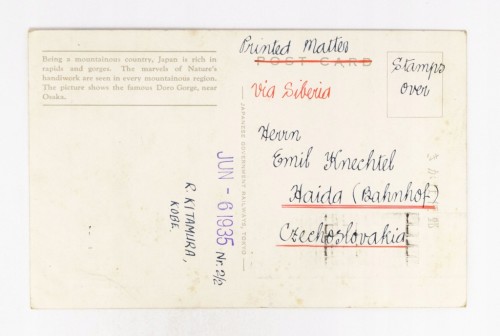 Being a mountainous country, Japan is rich in
rapids and gorges. The marvels of Nature's
handiwork are seen in every mountainous region.
The picture shows the famous Doro Gorge, near
Osaka.
Printed Matter
POST CARD
via Siberia
Stamps
over
Herrn
Emil Knechtel
Haida (Bahnhof)
Czechoslovakia
JAPANESE GOVERNMENT RAILWAYS, TOKYO
JUN - 6 1935 Nr. 2/2
R. KITAMURA,
KOBE.